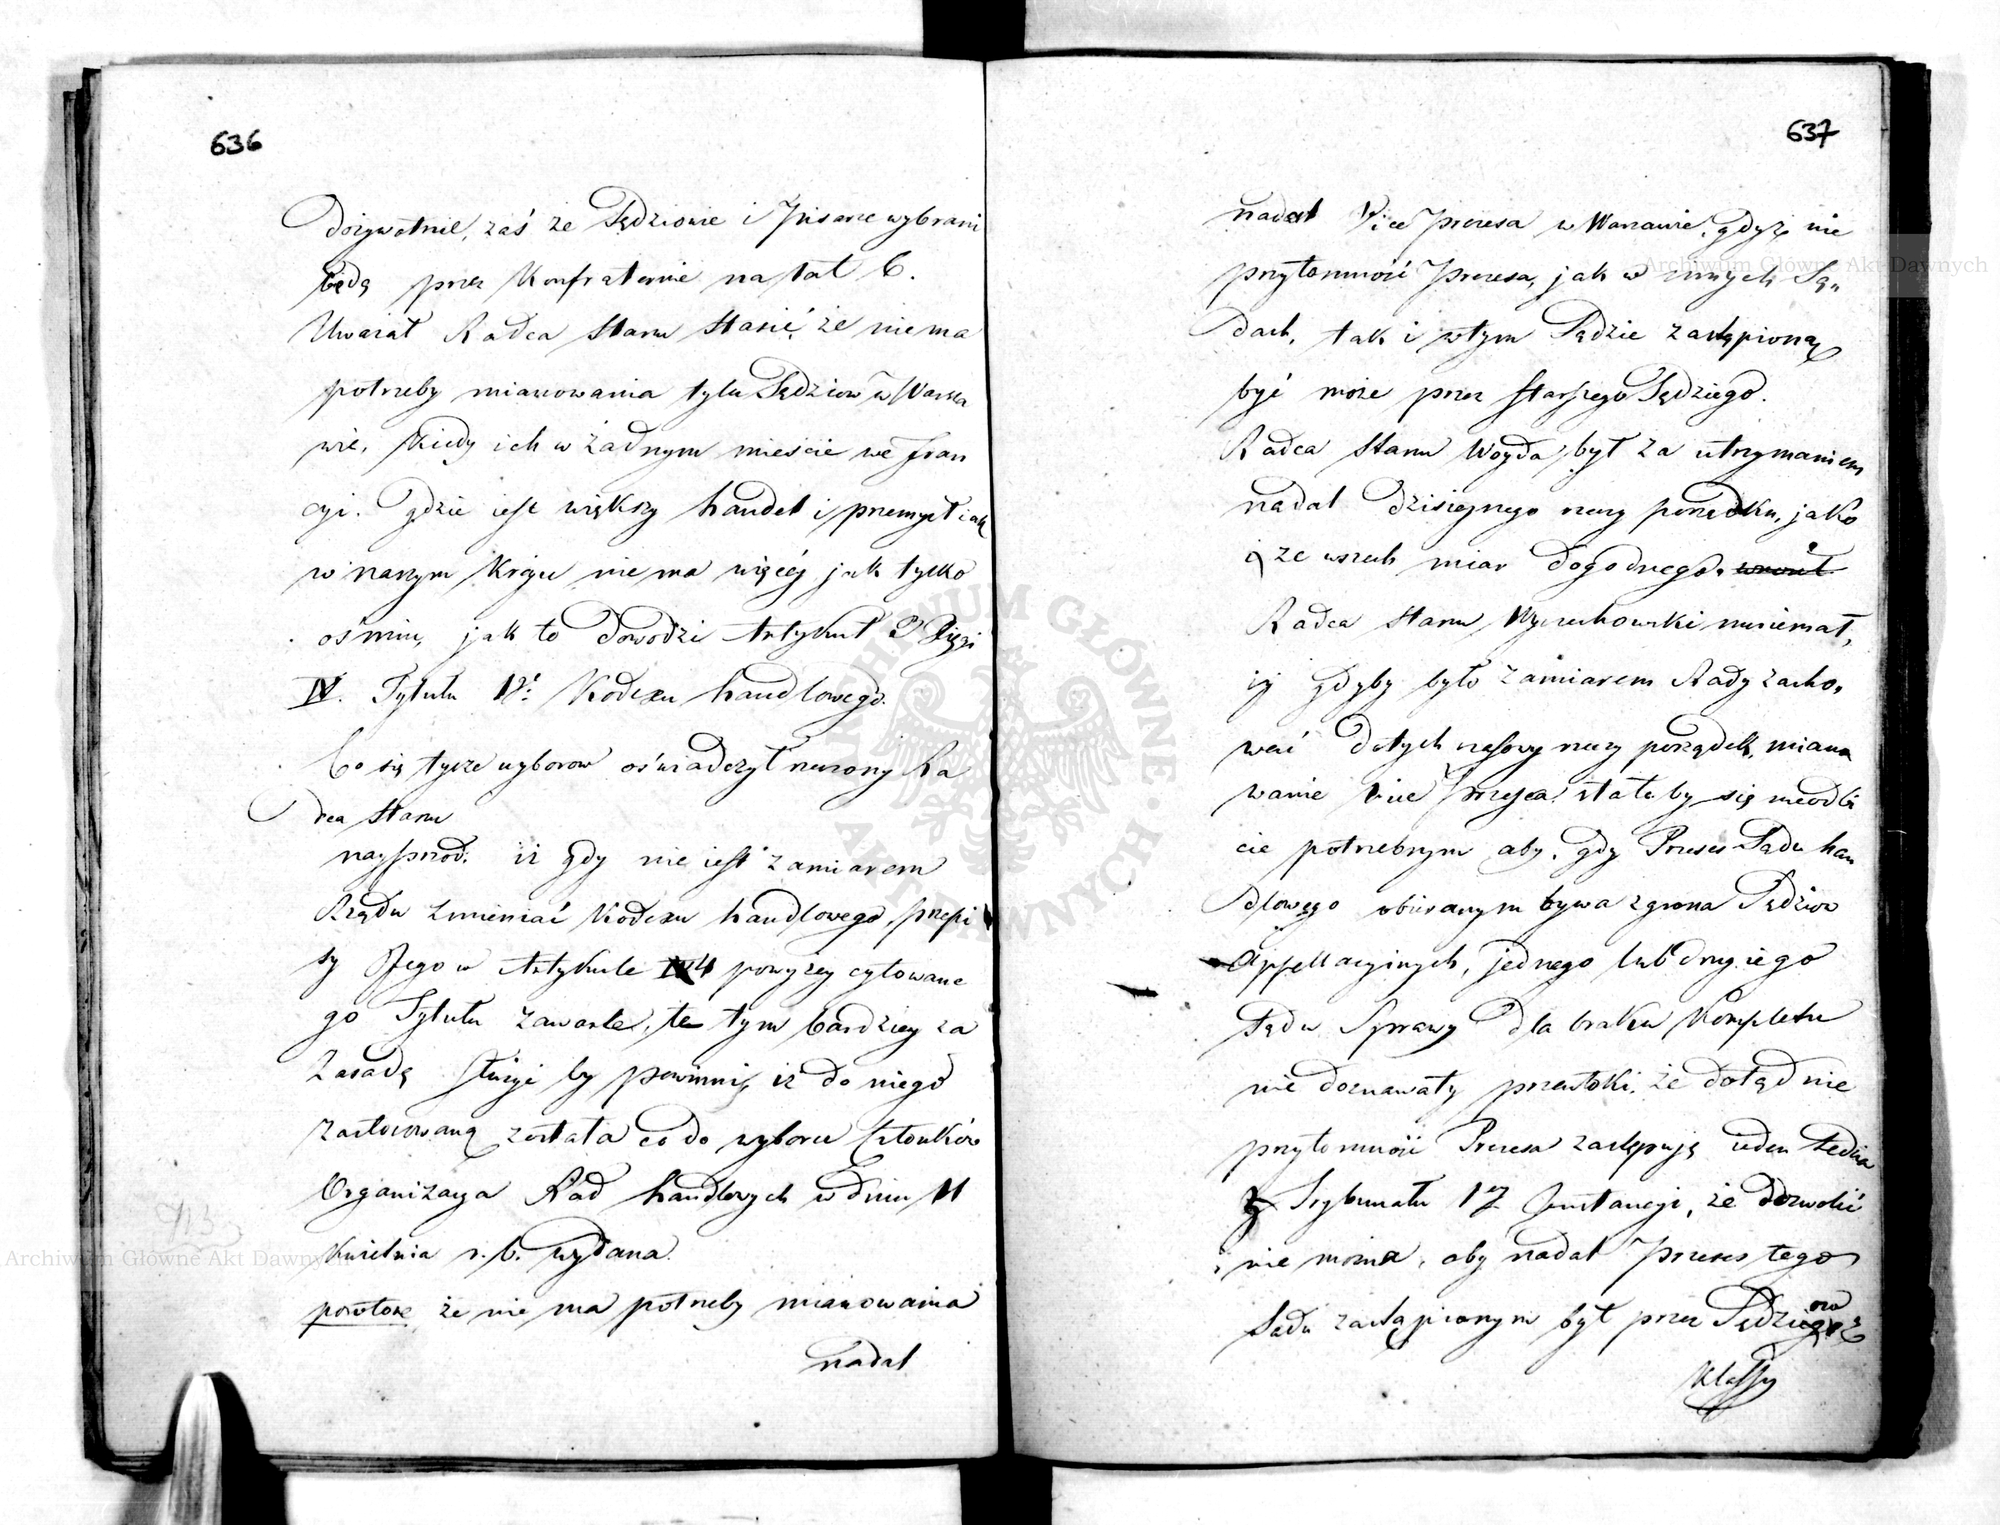 636
Dożywotnie, zaś że Sędziowie i Pisarze wybrani
będą przez Konfraternie na lat 6.
Uważał Radca Stanu Stasić, że niema
potrzeby mianowania tylu Sędziow w Warsza
wie, kiedy ich w żadnym mieście we Fran
cyi. gdzie iest większy handel i przemysł iak
w naszym Kraju nie ma więcéj jak tylko
ośmiu, jak to dowodzi Artykuł 2 Xięgi
IV. Tytułu 1º Kodexu handlowego.
Co się tycze wyborow oświadczył rzeczony Ra
dca Stanu
nayprzod: iż gdy nie iest zamiarem
Rządu zmieniać Kodexu handlowego, przepi
sy Jego w Artykule 4 powyżey cytowane
go Tytułu zawarte, te tym bardziey za
zasadę służyć by powinny, iż do niego
zastosowaną została co do wyboru Członków
Organizacya Rad handlowych w dniu 11
Kwietnia r. b. wydana.
powtore że nie ma potrzeby mianowania
nadal
637
nadal Vice Prezesa w Warszawie, gdyż nie
przytomność Prezesa, jak w innych Są„
dach, tak i w tym Sądzie zastąpioną
być może przez starszego Sędziego.
Radca Stanu Woyda był za utrzymaniem
nadal dzisieyszego rzeczy porządku, jako
ze wszech miar dogodnego.
Radca Stanu Wyczechowski mniemał,
iż gdyby było zamiarem Rady zacho„
wać dotychczasowy rzeczy porządek, miano
wanie Vice Prezesa stało by się nieodbi
cie potrzebnym aby, gdy Prezes Sądu han
dlowego obieranym bywa z grona Sędziow
Appellacyinych, jednego lub drugiego
Sądu Sprawy dla braku Kompletu
nie doznawały przewłoki. że dotąd nie
przytomność Prezesa zastępuję ieden Sędzia
z Trybunału 1ey Instancyi, że dozwolić
nie można, aby nadal Prezes tego
Sądu zastąpionym był przez Sędziego
Klassy
Archiwum Główne Akt Dawnych
Archiwum Główne Akt Dawnych
ARCHIWUM GŁÓWNE AKT DAWNYCH